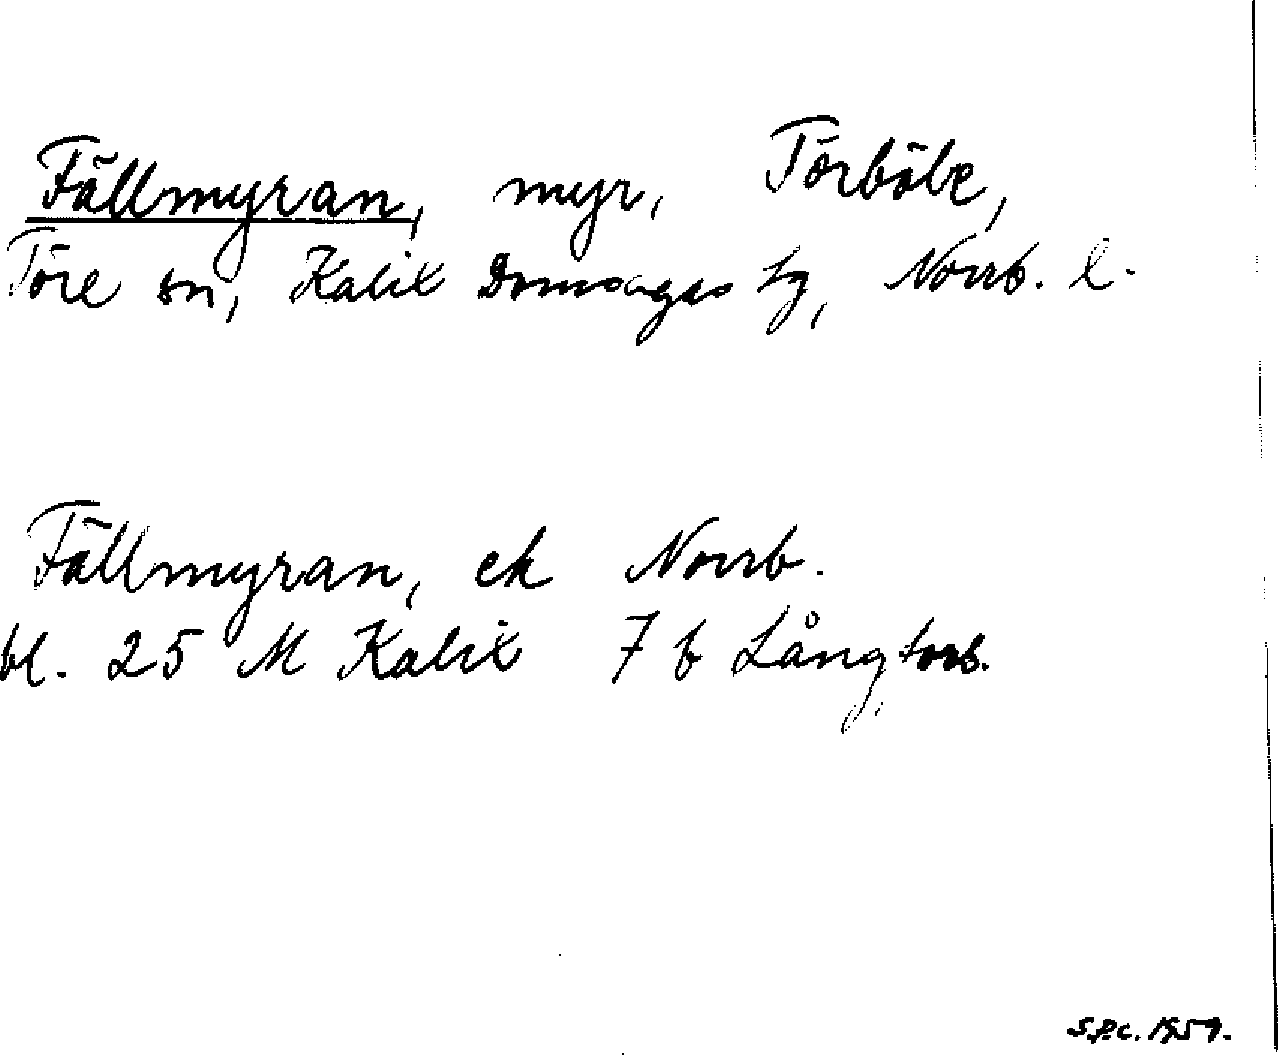 Fällmyran, myr, Törböle,
Töre sn, Kalix Domsagas tg, Norrb. l.
Fällmyran, ek Norrb.
bl. 25 M Kalix 7 b Långtorb.
S.P.C. 1959.